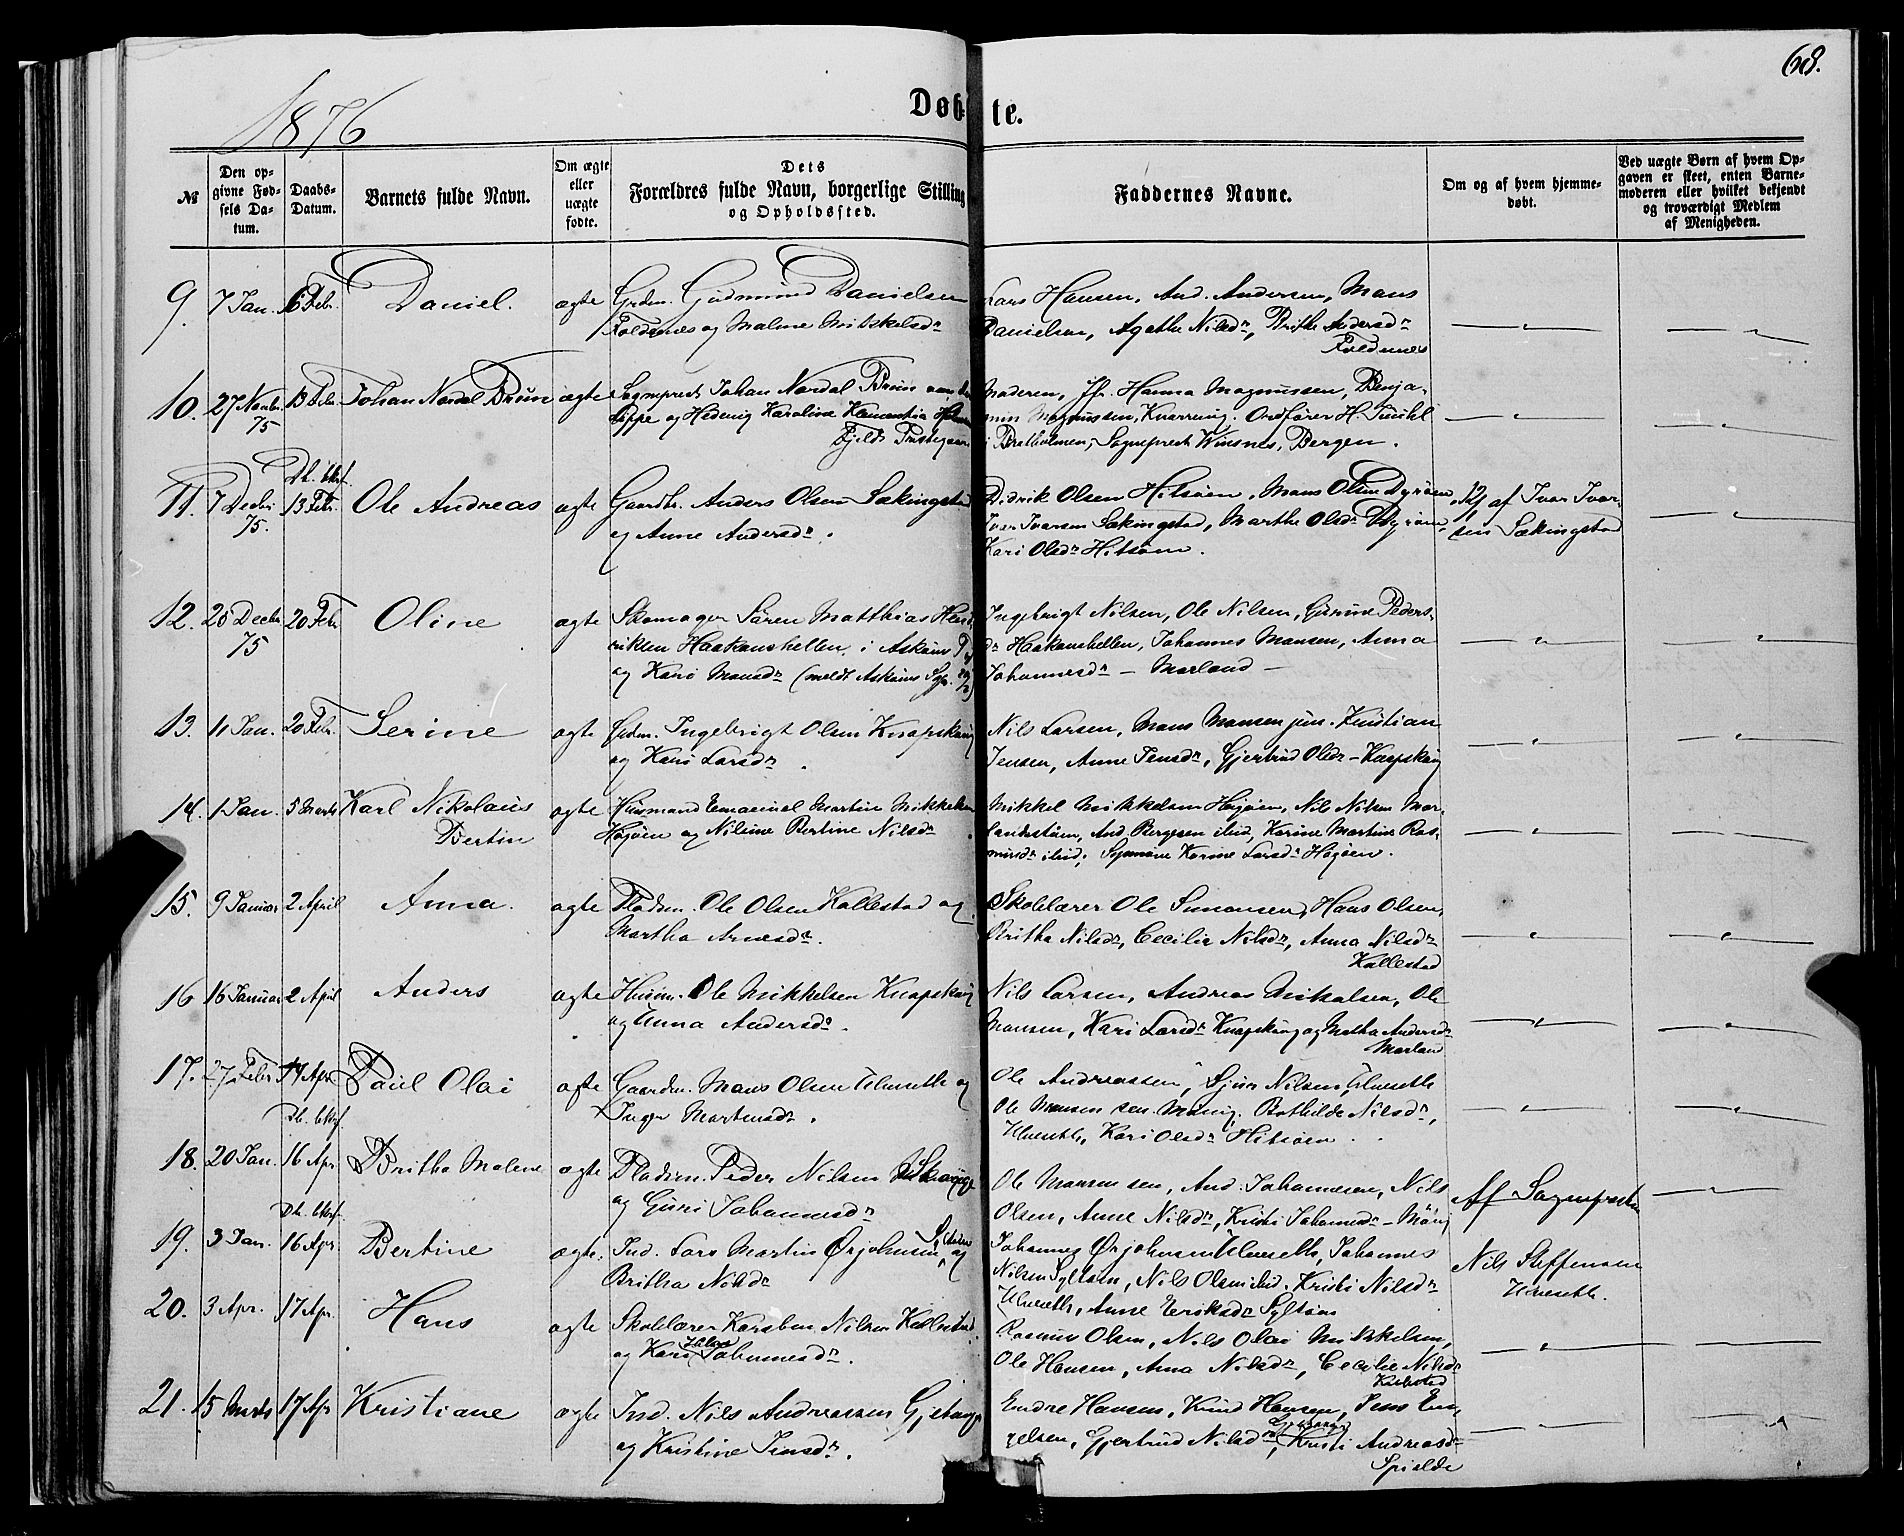 68.
1876
Døbte.
№
Den op-
givne Fød-
sels Da-
tum.
Daabs-
Datum.
Barnets fulde Navn.
Om ægte
eller
uægte
fødte.
Dets
Forældres fulde Navn, borgerlige Stilling
og Opholdssted.
Faddernes Navne.
Om og af hvem hjemme-
døbt.
Ved uægte Børn af hvem Op-
gaven er skeet, enten Barne-
moderen eller hvilket bekjendt
og troværdigt Medlem
af Menigheden.
9. 7 Jan. 6 Febr. Daniel. ægte Grdm. Gudmund Danielsen
Foldenes og Malene Mikkelsdr
Lars Hansen, And. Andersen, Mons
Danielsen, Agathe Nilsdr, Brithe Andersdr
Foldenes
10. 27 Novbr. 75 13 Febr. Johan Nordal Brun ægte Sognepræst Johan Nordal Brun
og Hedevig Karoline
Fjelds Præstegaard
Moderen, Jfr. Hanna Magnussen, Benja-
min Magnussen, Ordfører H.
i Bratholmen, Sognepræst Winsnes, Bergen.
11. 7 Decbr. 75. 13 Febr. Ole Andreas ægte Gaardbr. Anders Olsen Sækingstad
og Anne Andersdr.
Didrik Olsen Hitsøen, Mons Olsen Dyrøen,
Iver Iversen Sækingstad, Marthe Olsdr Dyrøen,
Kari Olsdr Hitsøen.
af Ivar Ivar-
sen Sækingstad
12. 20 Decbr 75 20 Febr Oline ægte Skomager Søren Matthias Hend-
riksen Haakonshellen i Askøens
og Kari Monsdr (meldt Askøens
Ingebrigt Nilsen, Ole Nilsen, Gurine Peders-
dr Haakonshellen, Johannes Monsen, Anna
Johannesdr – Morland –
13. 11 Jan. 20 Febr. Serine ægte Grdm. Ingebrigt Olsen Knapskoug
og Kari Larsdr.
Nils Larsen, Mons Monsen jun. Kristian
Jensen, Anne Jensdr, Gjertrud Olsdr – Knapskoug
14. 1 Jan. 5 Marts Karl Nikolaus
Bertin
ægte Huusmand Emanuel Martin Mikkelsen
Høgøen og Nilsine Bertine Nilsdr
Mikkel Mikkelsen Høgøen, Nils Nilsen Mor-
landstøen, And. Bergesen ibid, Karine Martine Ras-
musdr ibid, Synneve Karine Larsdr Høgøen.
15. 9 Januar 2 April Anna. ægte Pladsm. Ole Olsen Kallestad og
Martha Arnesdr.
Skolelærer Ole Simonsen, Hans Olsen,
Britha Nilsdr, Cecilie Nilsdr, Anna Nilsdr
Kallestad
16 16 Januar 2 April Anders ægte Huusm. Ole Mikkelsen Knapskoug
og Anna Andersdr.
Nils Larsen, Andreas Mikalsen, Ole
Monsen, Kari Larsdr Knapskoug og Martha Andersdr
Morland
17. 27 Febr 14 Apr. Paul Olai ægte Gaardm. Mons Olsen Ulveseth og
Inger Mortensdr.
Ole Andreassen, Sjur Nilsen, Ulveseth
Ole Monsen sen. Møvig, Bothilde Nilsdr,
Ulveseth, Kari Olsdr Hitsøen.
18. 20 Jan. 16 Apr. Britha Malene ægte Pladsm. Peder Nilsen
og Guri Johannesdr
Ole Monsen sen, And. Johannesen, Nils
Olsen, Anne Nilsdr, Kristi Johannesdr – Møvig
Af Sognepræsten
19. 3 Jan. 16 Apr. Bertine ægte. Ind. Lars Martin Ørjohnsen og
Britha Nilsdr
Johannes Ørjohnsen Ulveseth, Johannes
Nilsen Syltøen, Nils Olsen ibid. Kristi Nilsdr
Ulveseth, Anne Eriksdr Syltøen
Nils Steffensen
Ulveseth.
20. 3 Apr. 17 Apr. Hans ægte Skolelærer Karsten Nilsen Kallestad
og Kari Johannesdr.
Rasmus Olsen, Nils Olai Mikkelsen,
Ole Hansen, Anna Nilsdr, Cecilie Nilsdr
Kallestad
21. 15 Marts 17 Apr Kristiane ægte Ind. Nils Andreassen Gjetanger
og Kristine Jensdr.
Endre Hansen, Knud Hansen, Jens En-
gelsen, Gjertrud Nilsdr, Kristi Andreasdr
Spjelde